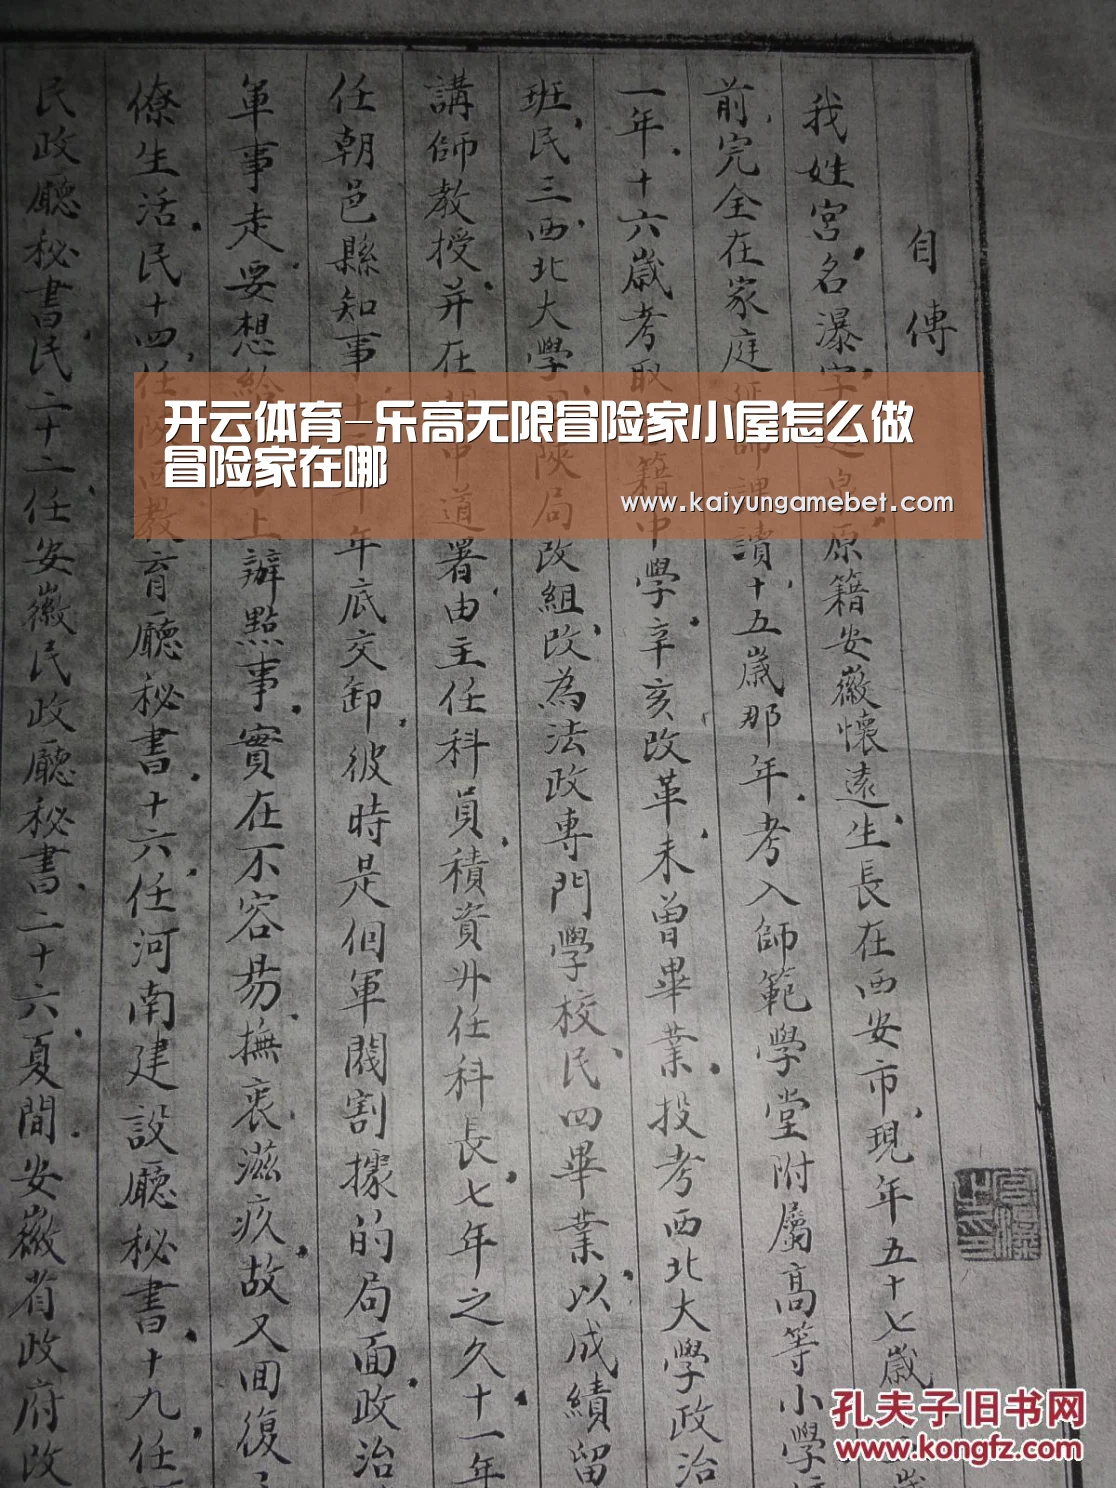 自傳
我姓宮，名瀑，字
原籍安徽懷遠，生長在西安市，現年五十七歲
前，完全在家庭
讀，十五歲那年，考入師範學堂附屬高等小學
一年，十六歲考取
籍中學，辛亥改革，未曾畢業，投考西北大學政治
班，民三，西北大學
陝局改組，改為法政專門學校，民四畢業，以成績留
講師教授，并在
道署由主任科員，積資升任科長，七年之久，十一年
任朝邑縣知事，十
年年底交卸，彼時是個軍閥割據的局面，政治
軍事走，妄想給
上辦點事，實在不容易，撫衷滋疚，故又回復
僚生活，民十四，任陝西教育廳秘書，十六，任河南建設廳秘書，十九，任
民政廳秘書，民二十二，任安徽民政廳秘書，二十六，夏間，安徽省政府改
开云体育-乐高无限冒险家小屋怎么做
冒险家在哪
www.kaiyungamebet.com
孔夫子旧书网
www.kongfz.com